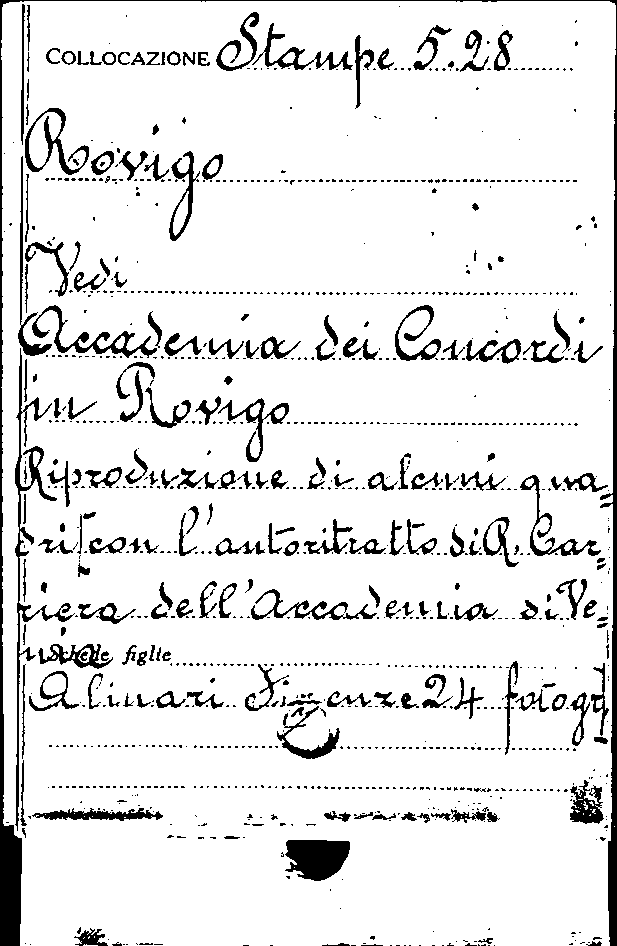 COLLOCAZIONE Stampe 5.28
Rovigo
Vedi
Accademia dei Concordi
in Rovigo
Riproduzione di alcuni qua=
dri [con l'autoritratto di R. Car=
riera dell'Accademia di Ve=
nia
Schede figlie
Alinari Firenze 24 fotogr]